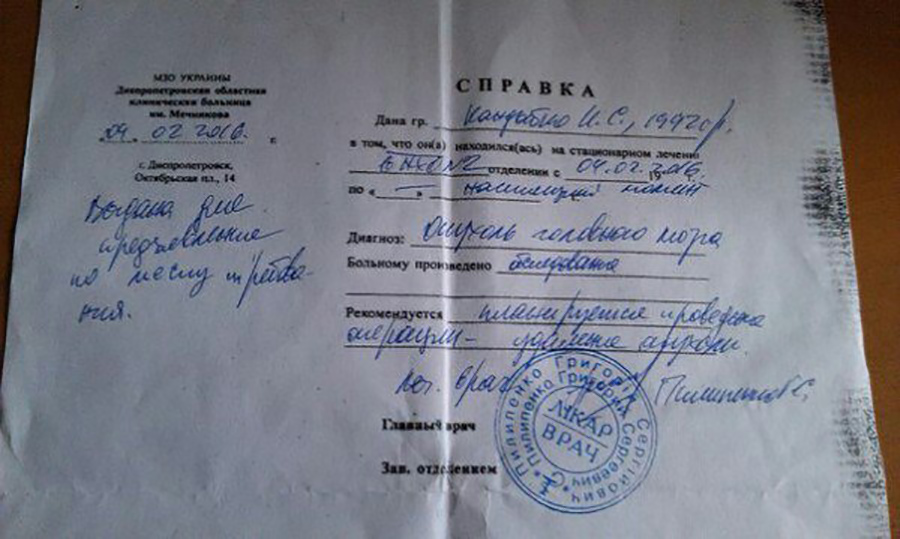 МЗО УКРАИНЫ
Днепропетровская областная
клиническая больница
им. Мечникова
"04" 02 2016 г.
г. Днепропетровск,
Октябрьская пл., 14
Выдана для
предъявления
по месту требова-
ния.
СПРАВКА
Дана гр. И.С., 1992 г.р.
в том, что он(а) находился(ась) на стационарном лечении
в отделении с 04.02.2016
по « — » настоящий момент
Диагноз: Опухоль головного мозга
Больному произведено обследование
Рекомендуется планируется проведение
операции - удаление опухоли.
Леч. врач Пилипенко Г.С.
Главный врач
Зав. отделением
Пилипенко Григорій Сергійович
Пилипенко Григорий Сергеевич
ЛІКАР
ВРАЧ